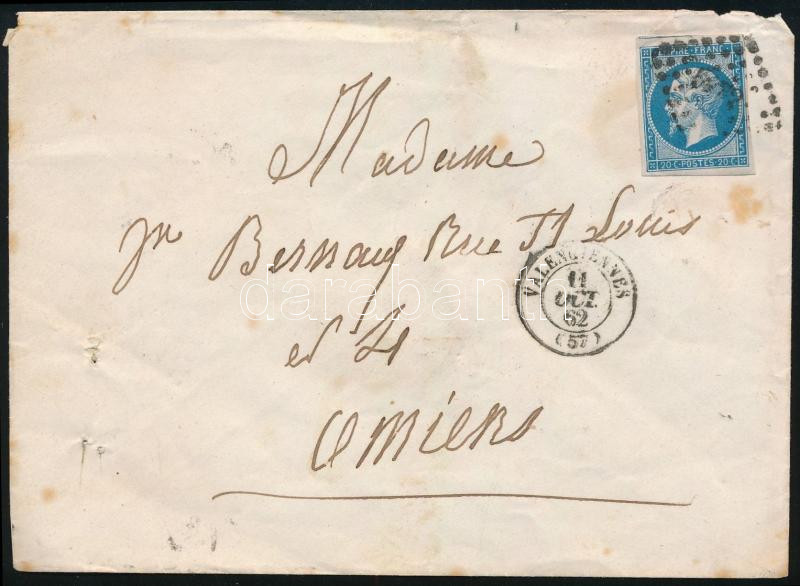 EMPIRE FRANC
20 C POSTES 20 C
Madame
Rue St Louis
VALENCIENNES
11
OCT.
62
(57)
darabanth
Amiens